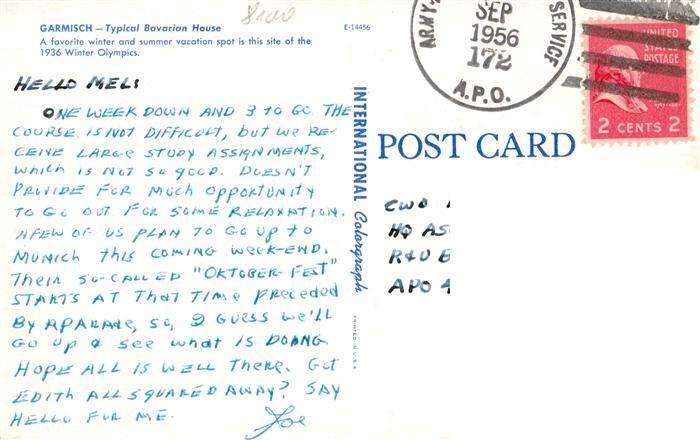 GARMISCH—Typical Bavarian House
A favorite winter and summer vacation spot is this site of the
1936 Winter Olympics.
E-14456
HELLO MEL:
ONE WEEK DOWN AND 3 TO GO. THE
COURSE IS NOT DIFFICULT, but we RE-
CEIVE LARGE STUDY ASSIGNMENTS,
which is NOT SO GOOD. DOESN'T
PROVIDE FOR MUCH OPPORTUNITY
TO GO OUT FOR SOME RELAXATION.
A FEW OF US PLAN TO GO UP TO
MUNICH THIS COMING WEEK-END.
Their SO-CALLED "OKTOBER FEST"
STARTS AT THAT TIME PRECEDED
By A PARADE, SO, I GUESS we'LL
GO UP & SEE WHAT IS DOING
HOPE ALL IS WELL THERE. GOT
EDITH ALL SQUARED AWAY? SAY
HELLO FOR ME.
Joe
INTERNATIONAL Colorgraph
PRINTED IN U.S.A.
POST CARD
ARMY
SERVICE
SEP
1956
172
A.P.O.
UNITED
STATES
POSTAGE
2 CENTS 2
CWO
HQ AS
R&U E
APO